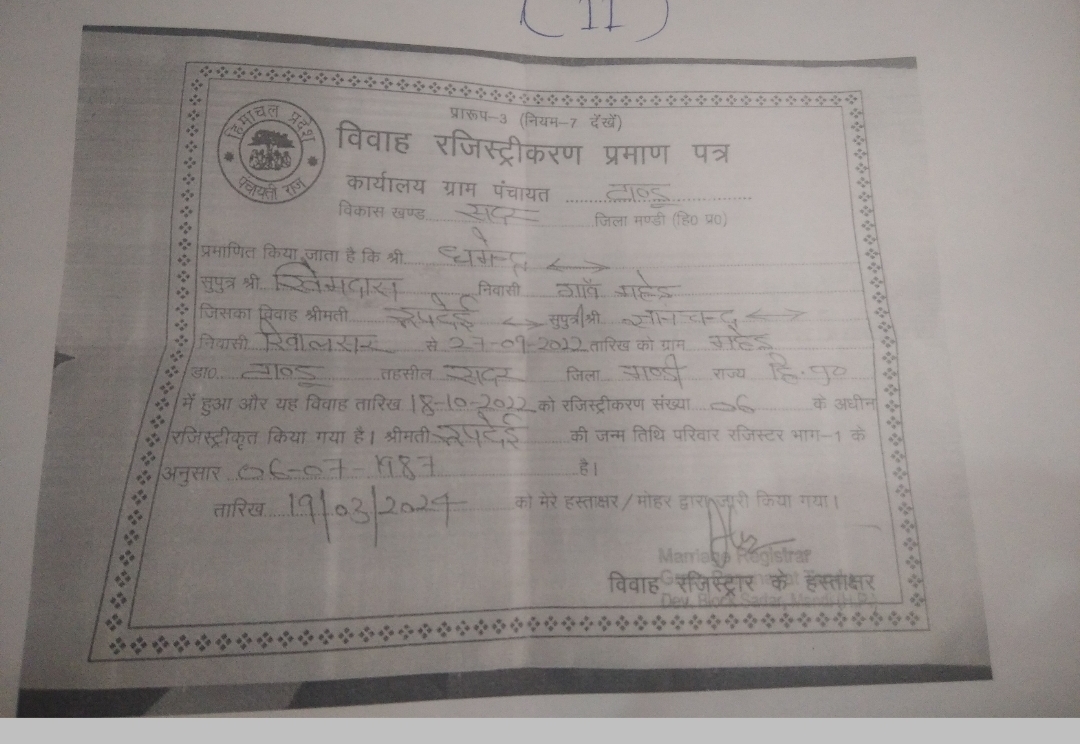 (11)
प्रारूप-3 (नियम-7 देखें)
हिमाचल प्रदेश
पंचायती राज
विवाह रजिस्ट्रीकरण प्रमाण पत्र
कार्यालय ग्राम पंचायत
विकास खण्ड सदर जिला मण्डी (हि0 प्र0)
प्रमाणित किया जाता है कि श्री धर्मेन्द्र
सुपुत्र श्री खिमदास निवासी गाँव
जिसका विवाह श्रीमती रूपदेई सुपुत्री श्री
निवासी रिवालसर से 27-09-2022 तारिख को ग्राम
डा0 तहसील सदर जिला मण्डी राज्य हि.प्र0
में हुआ और यह विवाह तारिख 18-10-2022 को रजिस्ट्रीकरण संख्या 06 के अधीन
रजिस्ट्रीकृत किया गया है। श्रीमती रूपदेई की जन्म तिथि परिवार रजिस्टर भाग-1 के
अनुसार 06-07-1987 है।
तारिख 19/03/2024 को मेरे हस्ताक्षर / मोहर द्वारा जारी किया गया।
Marriage Registrar
विवाह रजिस्ट्रार के हस्ताक्षर
Dev. Block Sadar, Mandi (H.P.)